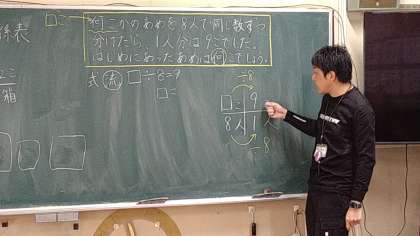 □こ
何こかのあめを8人で同じ数ずつ
分けたら、1人分は9こでした。
はじめにあったあめは何こでしょう。
係表
2こ
箱
式 流 □÷8=9
□=
÷8
□こ 9
8人 1人
÷8